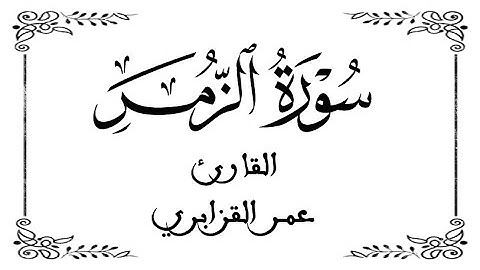 سُورَةُ ٱلزُّمَرِ
القارئ
عمر القزابري